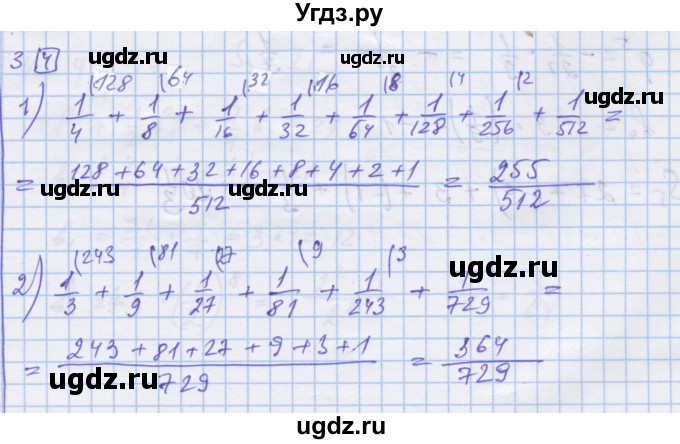 Угдз.ру
3 4
1) 1/4 (128 + 1/8 (64 + 1/16 (32 + 1/32 (16 + 1/64 (8 + 1/128 (4 + 1/256 (2 + 1/512 =
= 128+64+32+16+8+4+2+1/512 = 255/512
2) 1/3 (243 + 1/9 (81 + 1/27 (27 + 1/81 (9 + 1/243 (3 + 1/729 =
= 243+81+27+9+3+1/729 = 364/729
ugdz.ru ugdz.ru ugdz.ru
ugdz.ru ugdz.ru ugdz.ru
ugdz.ru ugdz.ru ugdz.ru
ugdz.ru ugdz.ru ugdz.ru
ugdz.ru